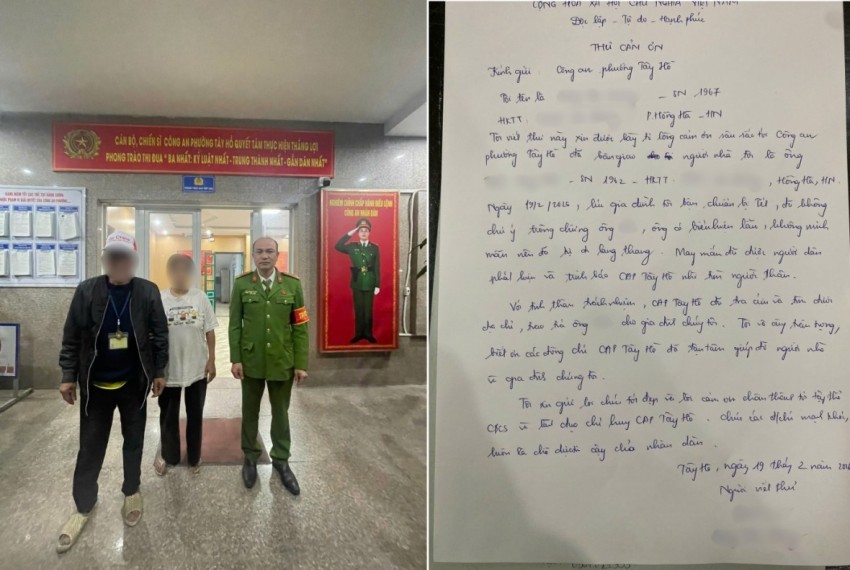 CÁN BỘ, CHIẾN SĨ CÔNG AN PHƯỜNG TÂY HỒ QUYẾT TÂM THỰC HIỆN THẮNG LỢI
PHONG TRÀO THI ĐUA " BA NHẤT: KỶ LUẬT NHẤT - TRUNG THÀNH NHẤT - GẦN DÂN NHẤT"
NGHIÊM CHỈNH CHẤP HÀNH ĐIỀU LỆNH
CÔNG AN NHÂN DÂN
CỘNG HÒA XÃ HỘI CHỦ NGHĨA VIỆT NAM
Độc lập - Tự do - Hạnh phúc
THƯ CẢM ƠN
Kính gửi: Công an phường Tây Hồ
Tôi tên là - SN 1967
HKTT: P. Hồng Hà - HN
Tôi viết thư này xin được bày tỏ lòng cảm ơn sâu sắc tới Công an
phường Tây Hồ đã bàn giao người nhà tôi là ông
- SN 1942 - HKTT: , Hồng Hà, HN.
Ngày 19/2/2026, khi gia đình tôi bận, chiều Tết, đã không
chú ý trông chừng ông , ông có biểu hiện lẫn, không minh
mẫn nên đã bị đi lang thang. May mắn đã được người dân
phát hiện và trình báo CAP Tây Hồ nhờ tìm người thân.
Với tinh thần trách nhiệm, CAP Tây Hồ đã tra cứu và tìm được
địa chỉ, trao trả ông cho gia đình chúng tôi. Tôi vô cùng trân trọng,
biết ơn các đồng chí CAP Tây Hồ đã tận tâm giúp đỡ người nhà
và gia đình chúng tôi.
Tôi xin gửi lời chúc tốt đẹp và lời cảm ơn chân thành tới tập thể
CBCS và lãnh đạo chỉ huy CAP Tây Hồ. Chúc các đ/chí mạnh khỏe,
luôn là chỗ dựa tin cậy của nhân dân.
Tây Hồ, ngày 19 tháng 2 năm
Người viết thư